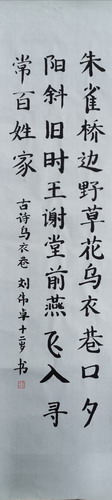 朱雀桥边野草花乌衣巷口夕
阳斜旧时王谢堂前燕飞入寻
常百姓家
古诗乌衣巷 刘伟卓十二岁书